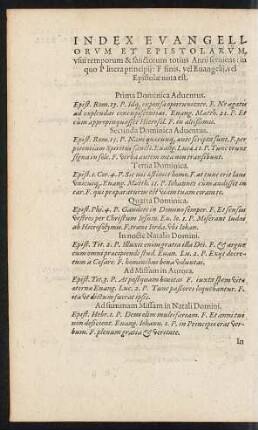 INDEX EVANGELI-
ORVM ET EPISTOLARVM,
vsui temporum & sanctorum totius Anni seruiens: in
quo P litera principij: F finis, vel Euangelij, vel
Epistolæ nota est.
Prima Dominica Aduentus.
Epist. Rom. 13. P.
ad explendas concupiscentias. Euang. Matth. 21. P. Et
cum appropinquasset Hierosol. F. in altissimis.
Secunda Dominica Aduentus.
Epist. Rom. 15. P. Nam quæcunq; ante scripta sunt. F. per
potentiam Spiritus sancti. Euang. Luc. 21. P. Tunc erunt
signa in sole. F. Verba autem mea non transibunt.
Tertia Dominica.
Epist. 1. Cor. 4. P. Sic nos æstimet homo. F. at tunc erit laus
Vnicuiq; Euang. Matth. 11. P. Iohannes cum audisset in
car. F. qui præparaturus est viam tuam coram te.
Quarta Dominica.
Epist. Phi. 4. P. Gaudete in Domino semper. F. Et sensus
vestros per Christum Iesum. Eu. Io. 1. P. Miserunt Iudæi
ab Hierosolymis. F. trans Iorda. vbi Iohan.
In nocte Natalis Domini.
Epist. Tit. 2. P. Illuxit enim gratia illa Dei. F. & argue
cum omni præcipiendi stud. Euan. Lu. 2. P. Exijt decre-
tum a Cæsare. F. hominibus bona voluntas.
Ad Missam in Aurora.
Epist. Tit. 3. P. At postquam bonitas F. iuxta spem vitæ
æternæ Euang. Luc. 2. P. Tunc pastores loquebantur. F.
vti & dictum fuerat ipsis.
Ad summam Missam in Natali Domini.
Epist. Hebr. 1. P. Deus olim multifariam. F. Et anni tui
non deficient. Euang. Iohann. 1. P. In Principio erat ver-
bum. F. plenum gratia & veritate.
In